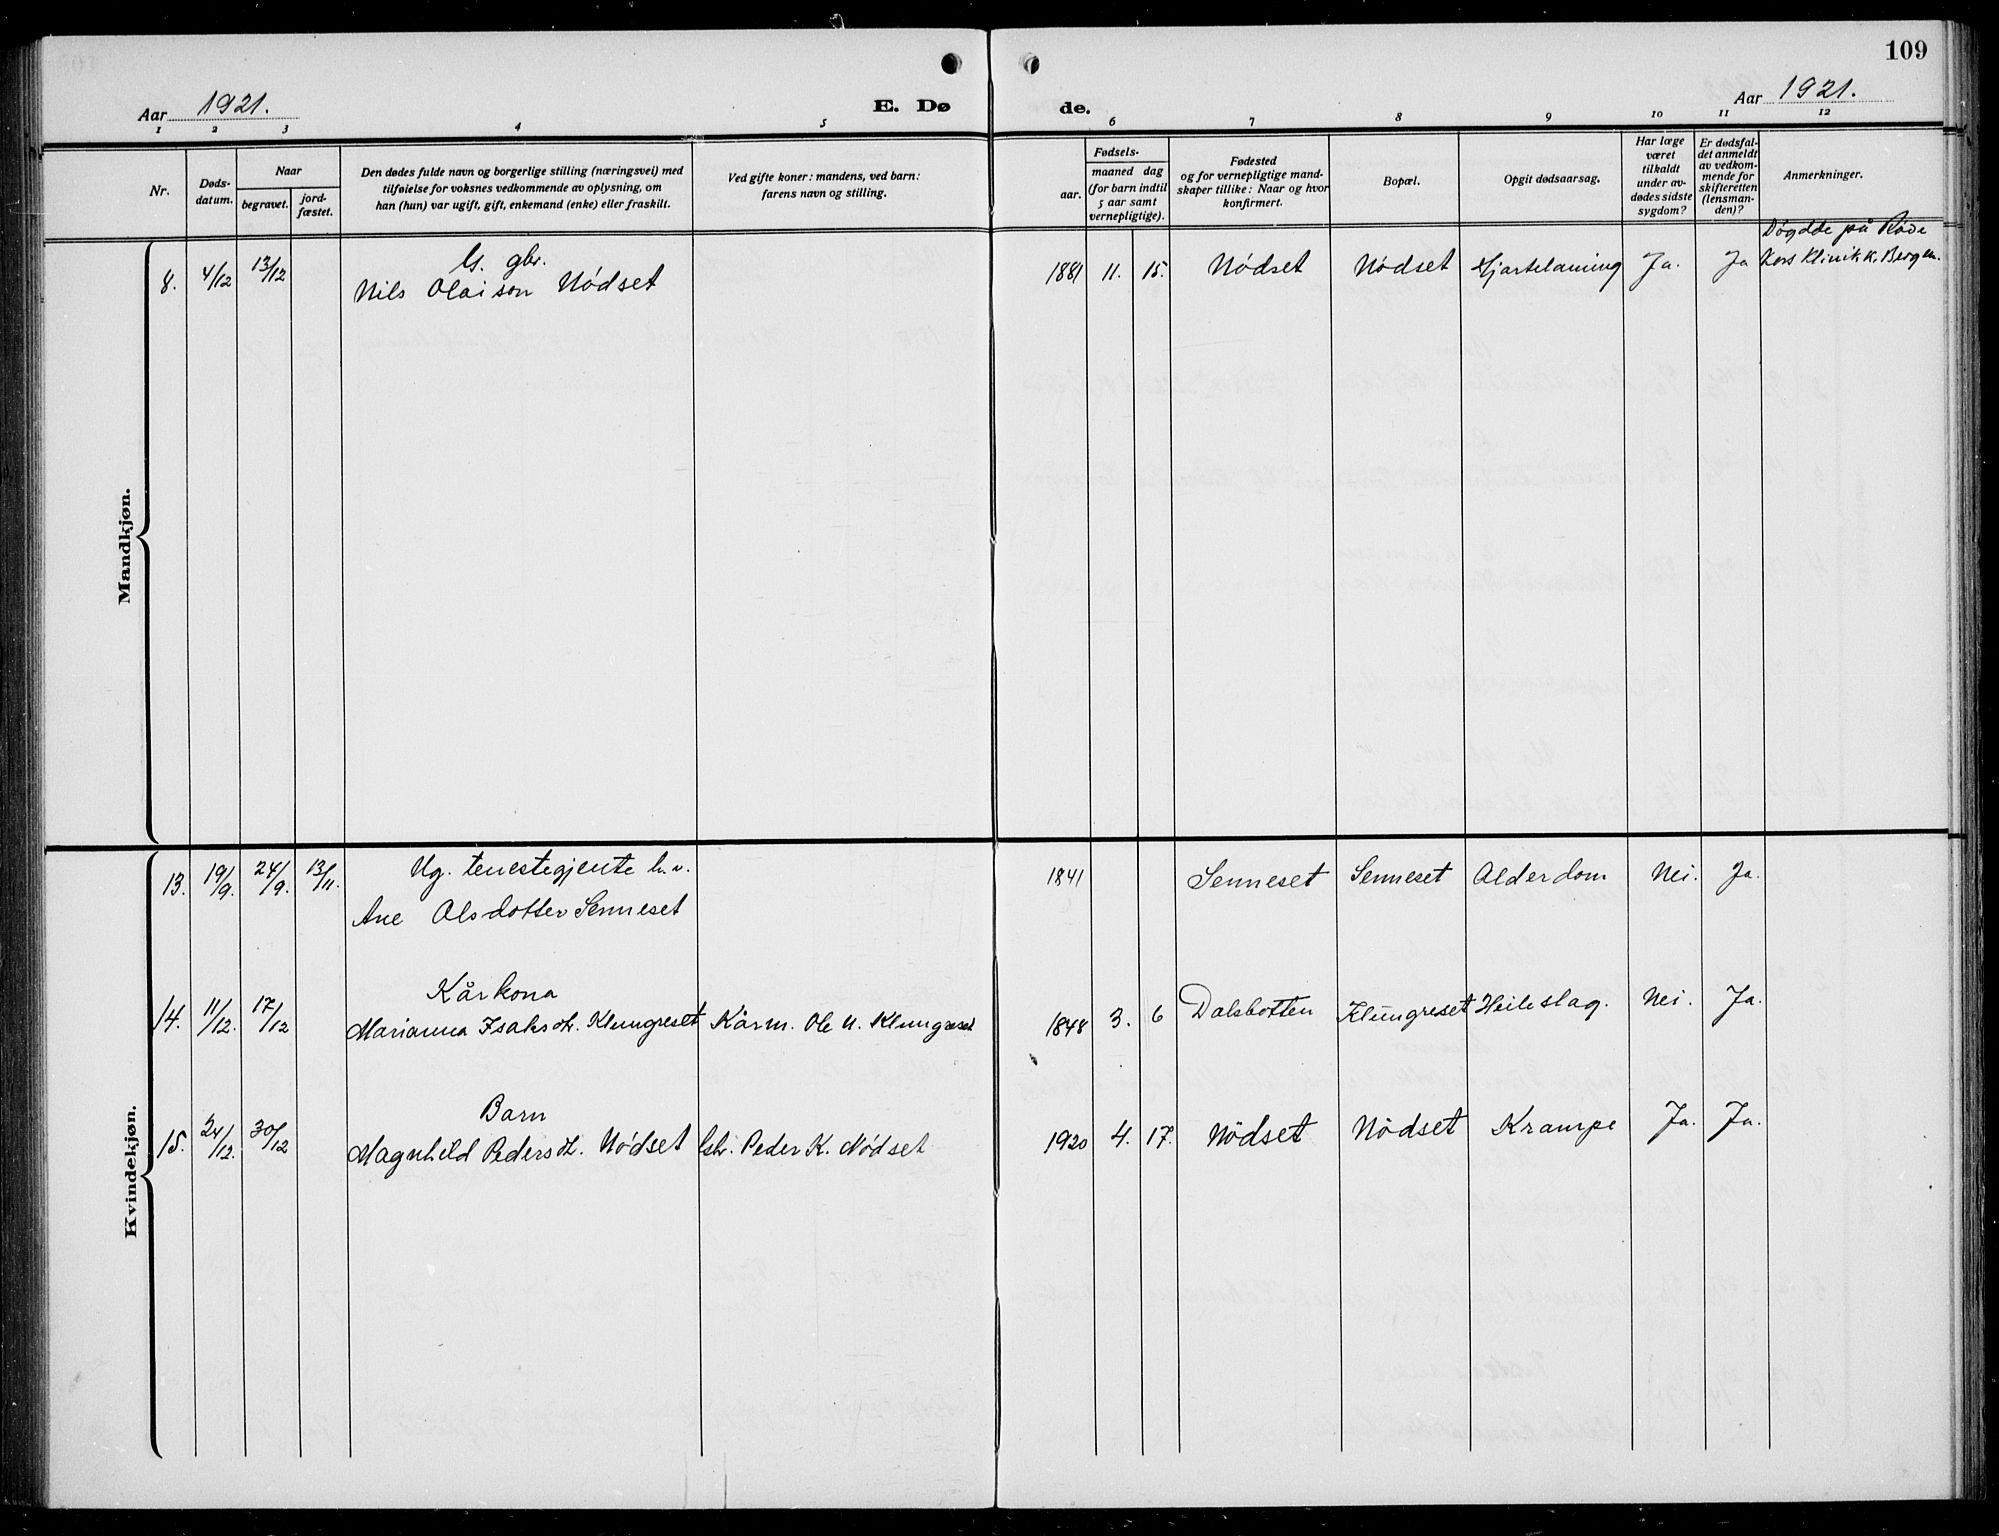 109
Aar 1921.
E. Dø
de.
Aar 1921.
1 2 3 4 5 6 7 8 9 10 11 12
Nr.
Døds-
datum.
Naar
begravet.
jord-
fæstet.
Den dødes fulde navn og borgerlige stilling (næringsvei) med
tilføielse for voksnes vedkommende av oplysning, om
han (hun) var ugift, gift, enkemand (enke) eller fraskilt.
Ved gifte koner: mandens, ved barn:
farens navn og stilling.
Fødsels-
aar.
maaned dag
(for barn indtil
5 aar samt
vernepligtige).
Fødested
og for vernepligtige mand-
skaper tillike: Naar og hvor
konfirmert.
Bopæl.
Opgit dødsaarsag.
Har læge
været
tilkaldt
under av-
dødes sidste
sygdom?
Er dødsfal-
det anmeldt
av vedkom-
mende for
skifteretten
(lensman-
den)?
Anmerkninger.
Mandkjøn.
8. 4/12 13/12
G. gbr.
Nils Olaison Nødset
1881 11. 15. Nødset Nødset Hjartelaming Ja. Ja
Døydde på Røde
Kors Klinikk, Bergen.
Kvindekjøn.
13. 19/9. 24/9. 13/11.
Ug. tenestegjente
Ane Olsdotter Senneset
1841 Senneset Senneset Alderdom Nei. Ja.
14. 11/12. 17/12
Kårkona
Marianna Isaksdt. Klungreset Kårm. Ole N. Klungreset
1848 3. 6 Dalsbotten Klungreset Heileslag. Nei. Ja.
15. 24/12. 30/12
Barn
Magnhild Pedersdt. Nødset Gbr. Peder K. Nødset
1920 4. 17. Nødset Nødset Krampe Ja. Ja.